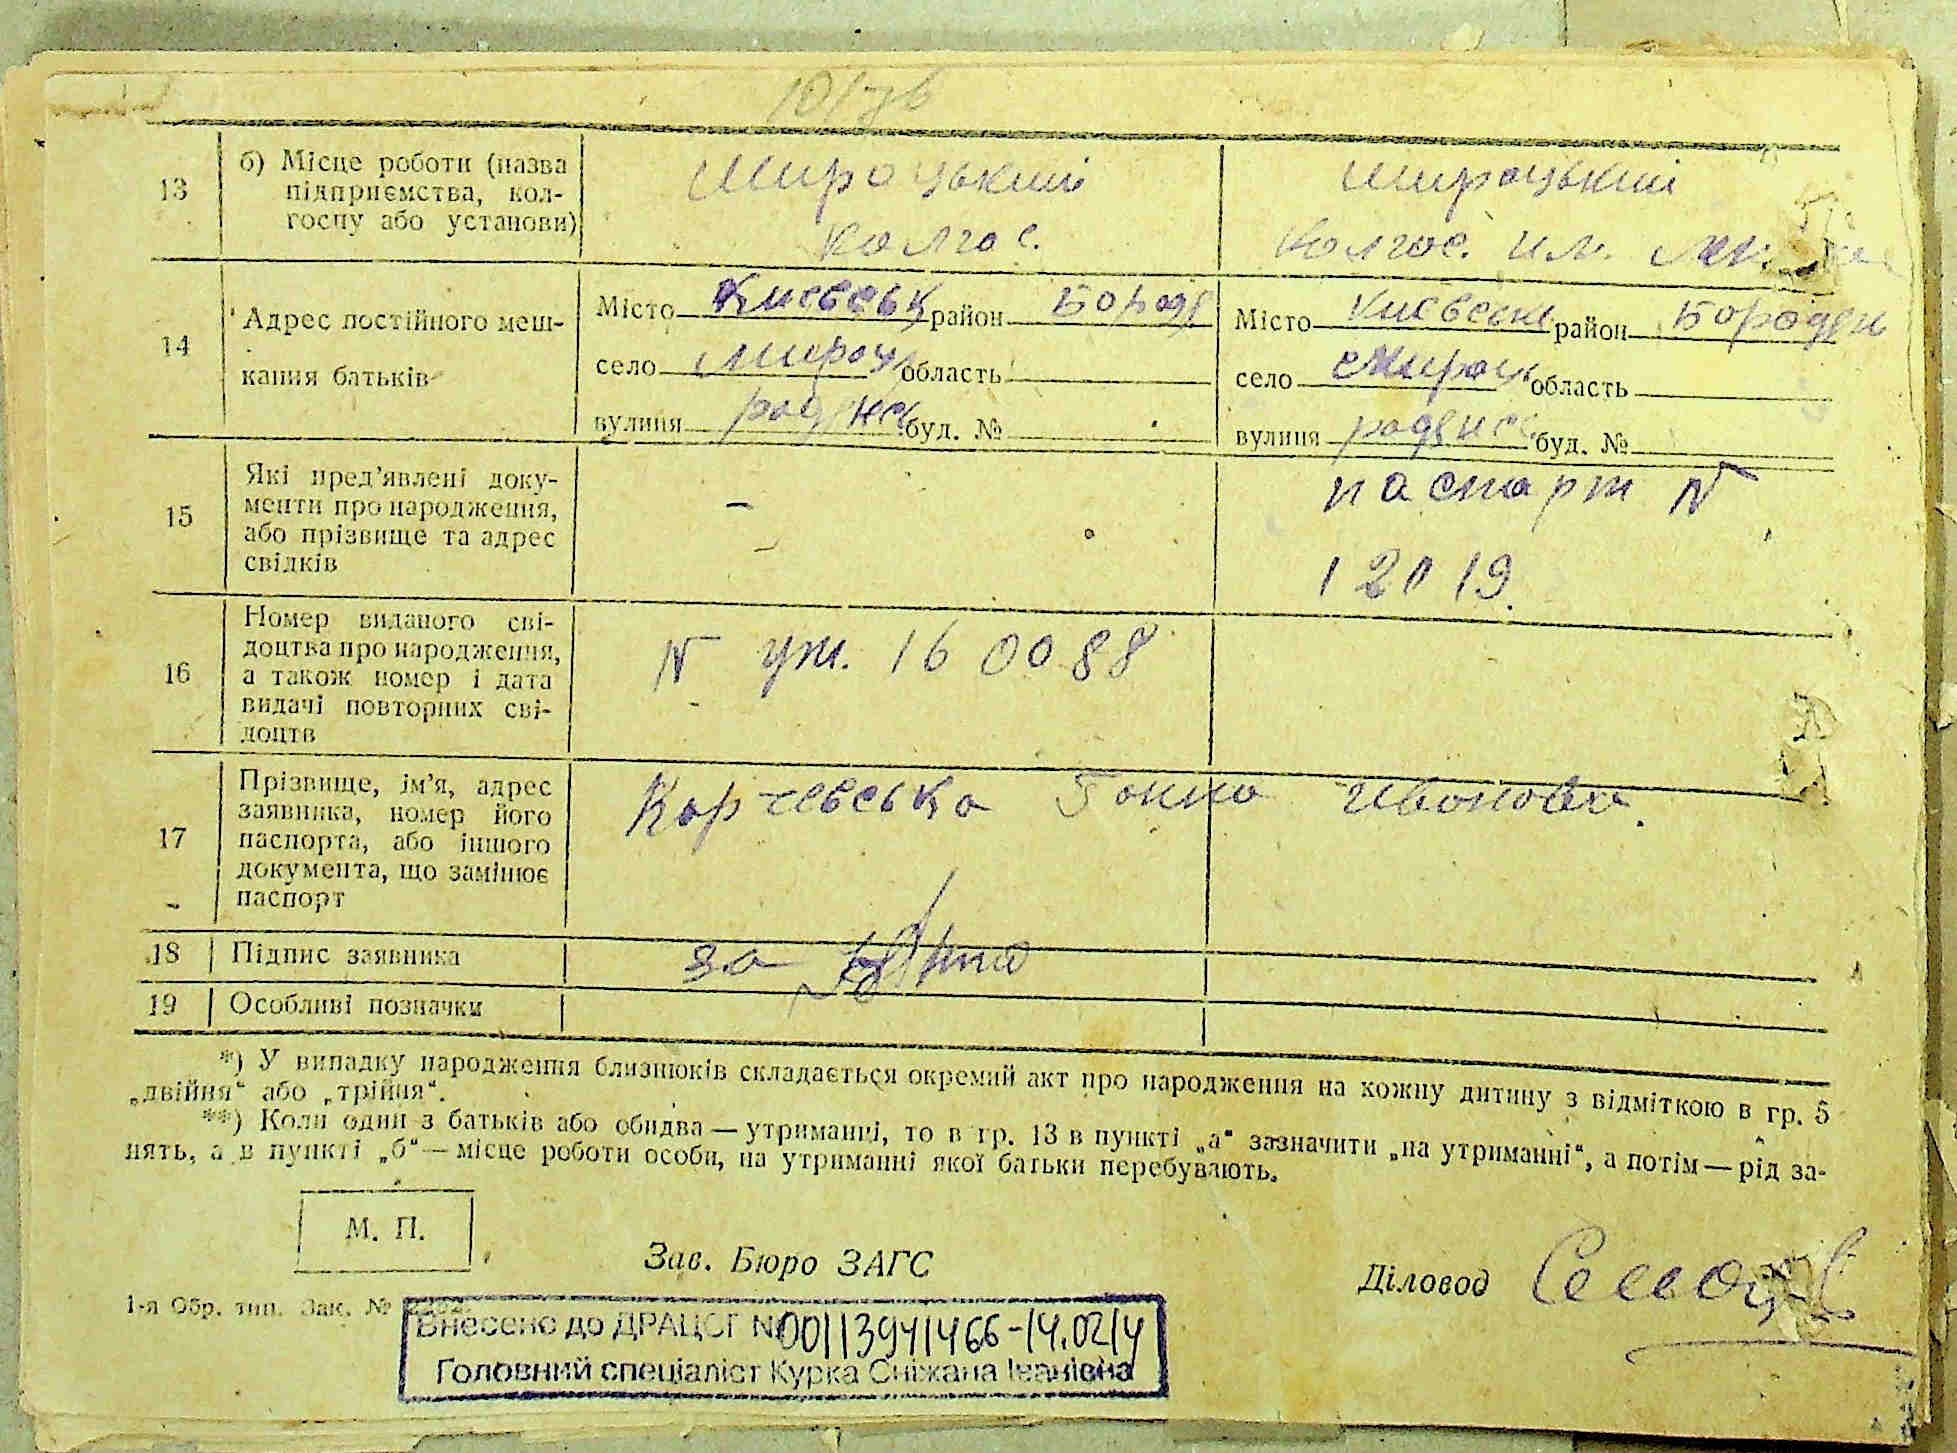 13
б) Місце роботи (назва
підприємства, кол-
госпу або установи)
Мироцький
колгос.
Мироцький
Колгос. им.
14
Адрес постійного меш-
кання батьків
Місто Киевськ район Бород
село Мироц область
вулиця радянс буд. №
Місто Киевськ район Бородян
село Мироц область
вулиця радянс буд. №
15
Які пред’явлені доку-
менти про народження,
або прізвище та адрес
свідків
–
паспорт №
12019.
16
Номер виданого сві-
доцтва про народження,
а також номер і дата
видачі повторних сві-
доцтв
N 160088
17
Прізвище, ім’я, адрес
заявника, номер його
паспорта, або іншого
документа, що замінює
паспорт
Корчевська Ганна Ивановн.
18
Підпис заявника
за
19
Особливі позначки
*) У випадку народження близнюків складається окремий акт про народження на кожну дитину з відміткою в гр. 5
„двійня“ або „трійня“.
**) Коли один з батьків або обидва — утриманці, то в гр. 13 в пункті „а“ зазначити „на утриманні“, а потім — рід за-
нять, а в пункті „б“ — місце роботи особи, на утриманні якої батьки перебувають.
М. П.
Зав. Бюро ЗАГС
Діловод
1-я Обр. тип. Зак. №
Внесено до ДРАЦСГ N00113941466-14.02.14
Головний спеціаліст Курка Сніжана Іванівна